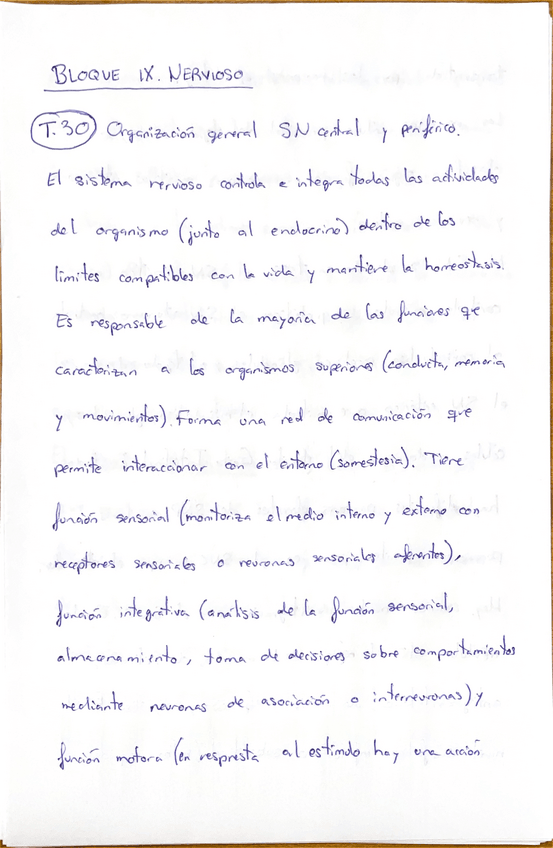 BLOQUE IX. NERVIOSO
T.30 Organización general SN central y periférico.
El sistema nervioso controla e integra todas las actividades
del organismo (junto al endocrino) dentro de los
límites compatibles con la vida y mantiene la homeostasis.
Es responsable de la mayoría de las funciones que
caracterizan a los organismos superiores (conducta, memoria
y movimientos). Forma una red de comunicación que
permite interaccionar con el entorno (somestesia). Tiene
función sensorial (monitoriza el medio interno y externo con
receptores sensoriales o neuronas sensoriales aferentes),
función integrativa (análisis de la función sensorial,
almacenamiento, toma de decisiones sobre comportamientos
mediante neuronas de asociación o interneuronas) y
función motora (en respuesta al estímulo hay una acción